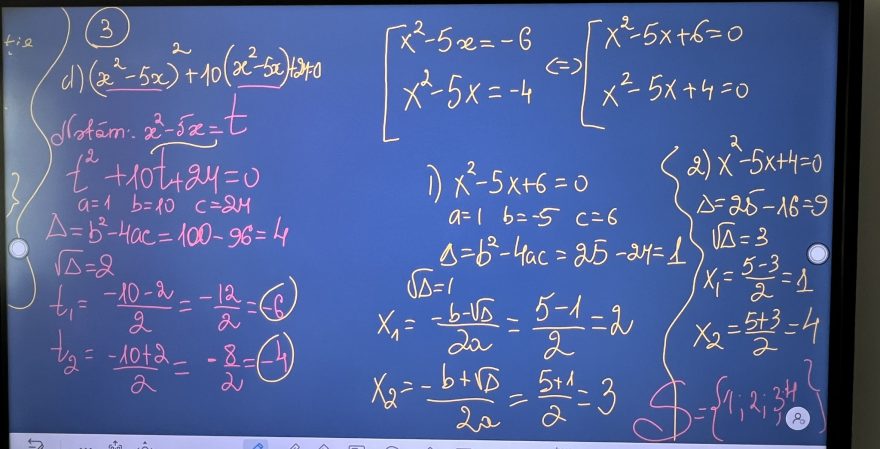 3
d) (x²-5x)²+10(x²-5x)+24=0
Notăm: x²-5x=t
t²+10t+24=0
a=1 b=10 c=24
Δ=b²-4ac=100-96=4
√Δ=2
t₁=(-10-2)/2=-12/2=-6
t₂=(-10+2)/2=-8/2=-4
[x²-5x=-6 <=> [x²-5x+6=0
x²-5x=-4 x²-5x+4=0
1) x²-5x+6=0
a=1 b=-5 c=6
Δ=b²-4ac=25-24=1
√Δ=1
x₁=(-b-√Δ)/2a=(5-1)/2=2
x₂=(-b+√Δ)/2a=(5+1)/2=3
2) x²-5x+4=0
Δ=25-16=9
√Δ=3
x₁=(5-3)/2=1
x₂=(5+3)/2=4
S={1;2;3;4}